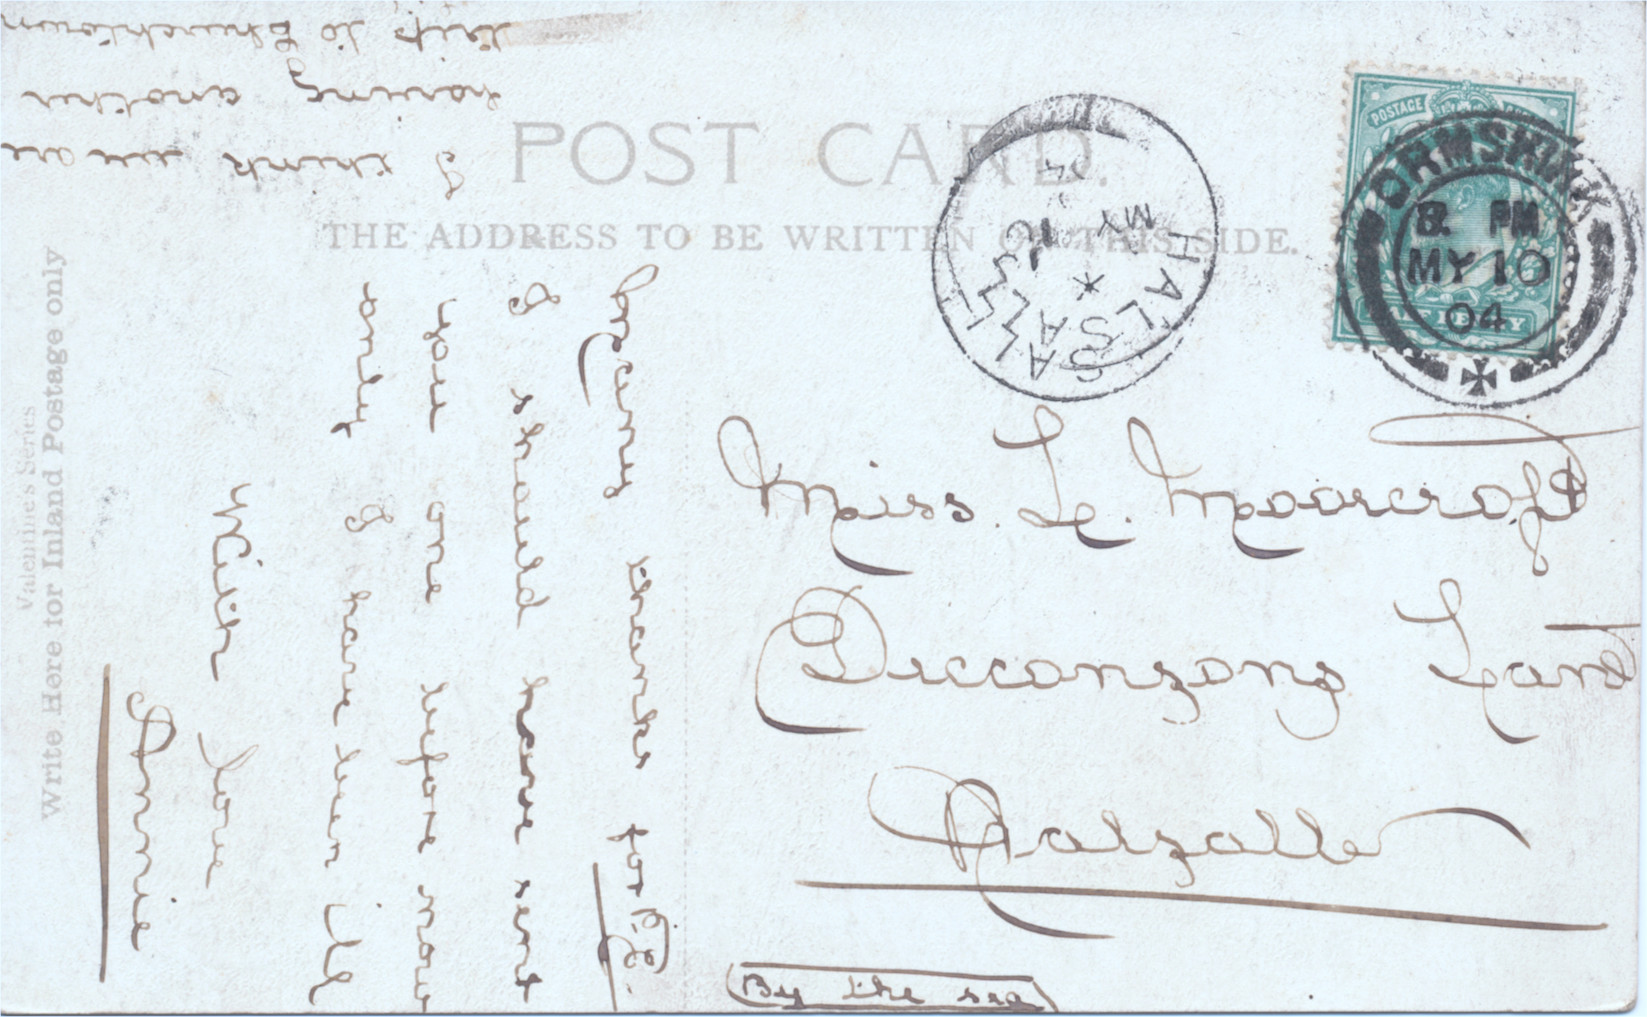 POST CARD.
THE ADDRESS TO BE WRITTEN ON THIS SIDE.
Valentine's Series
Write Here for Inland Postage only
POSTAGE
HALFPENNY
ORMSKIRK
8 PM
MY 10
04
HALSALL
*
MY 10
04
Miss. L. Moorcroft
Diccons Lane
Halsall
By the sea
Many thanks for P.C.
I should have sent
you one before now
only I have been ill
With love
Annie
I think we are
having another
trip to Churchtown